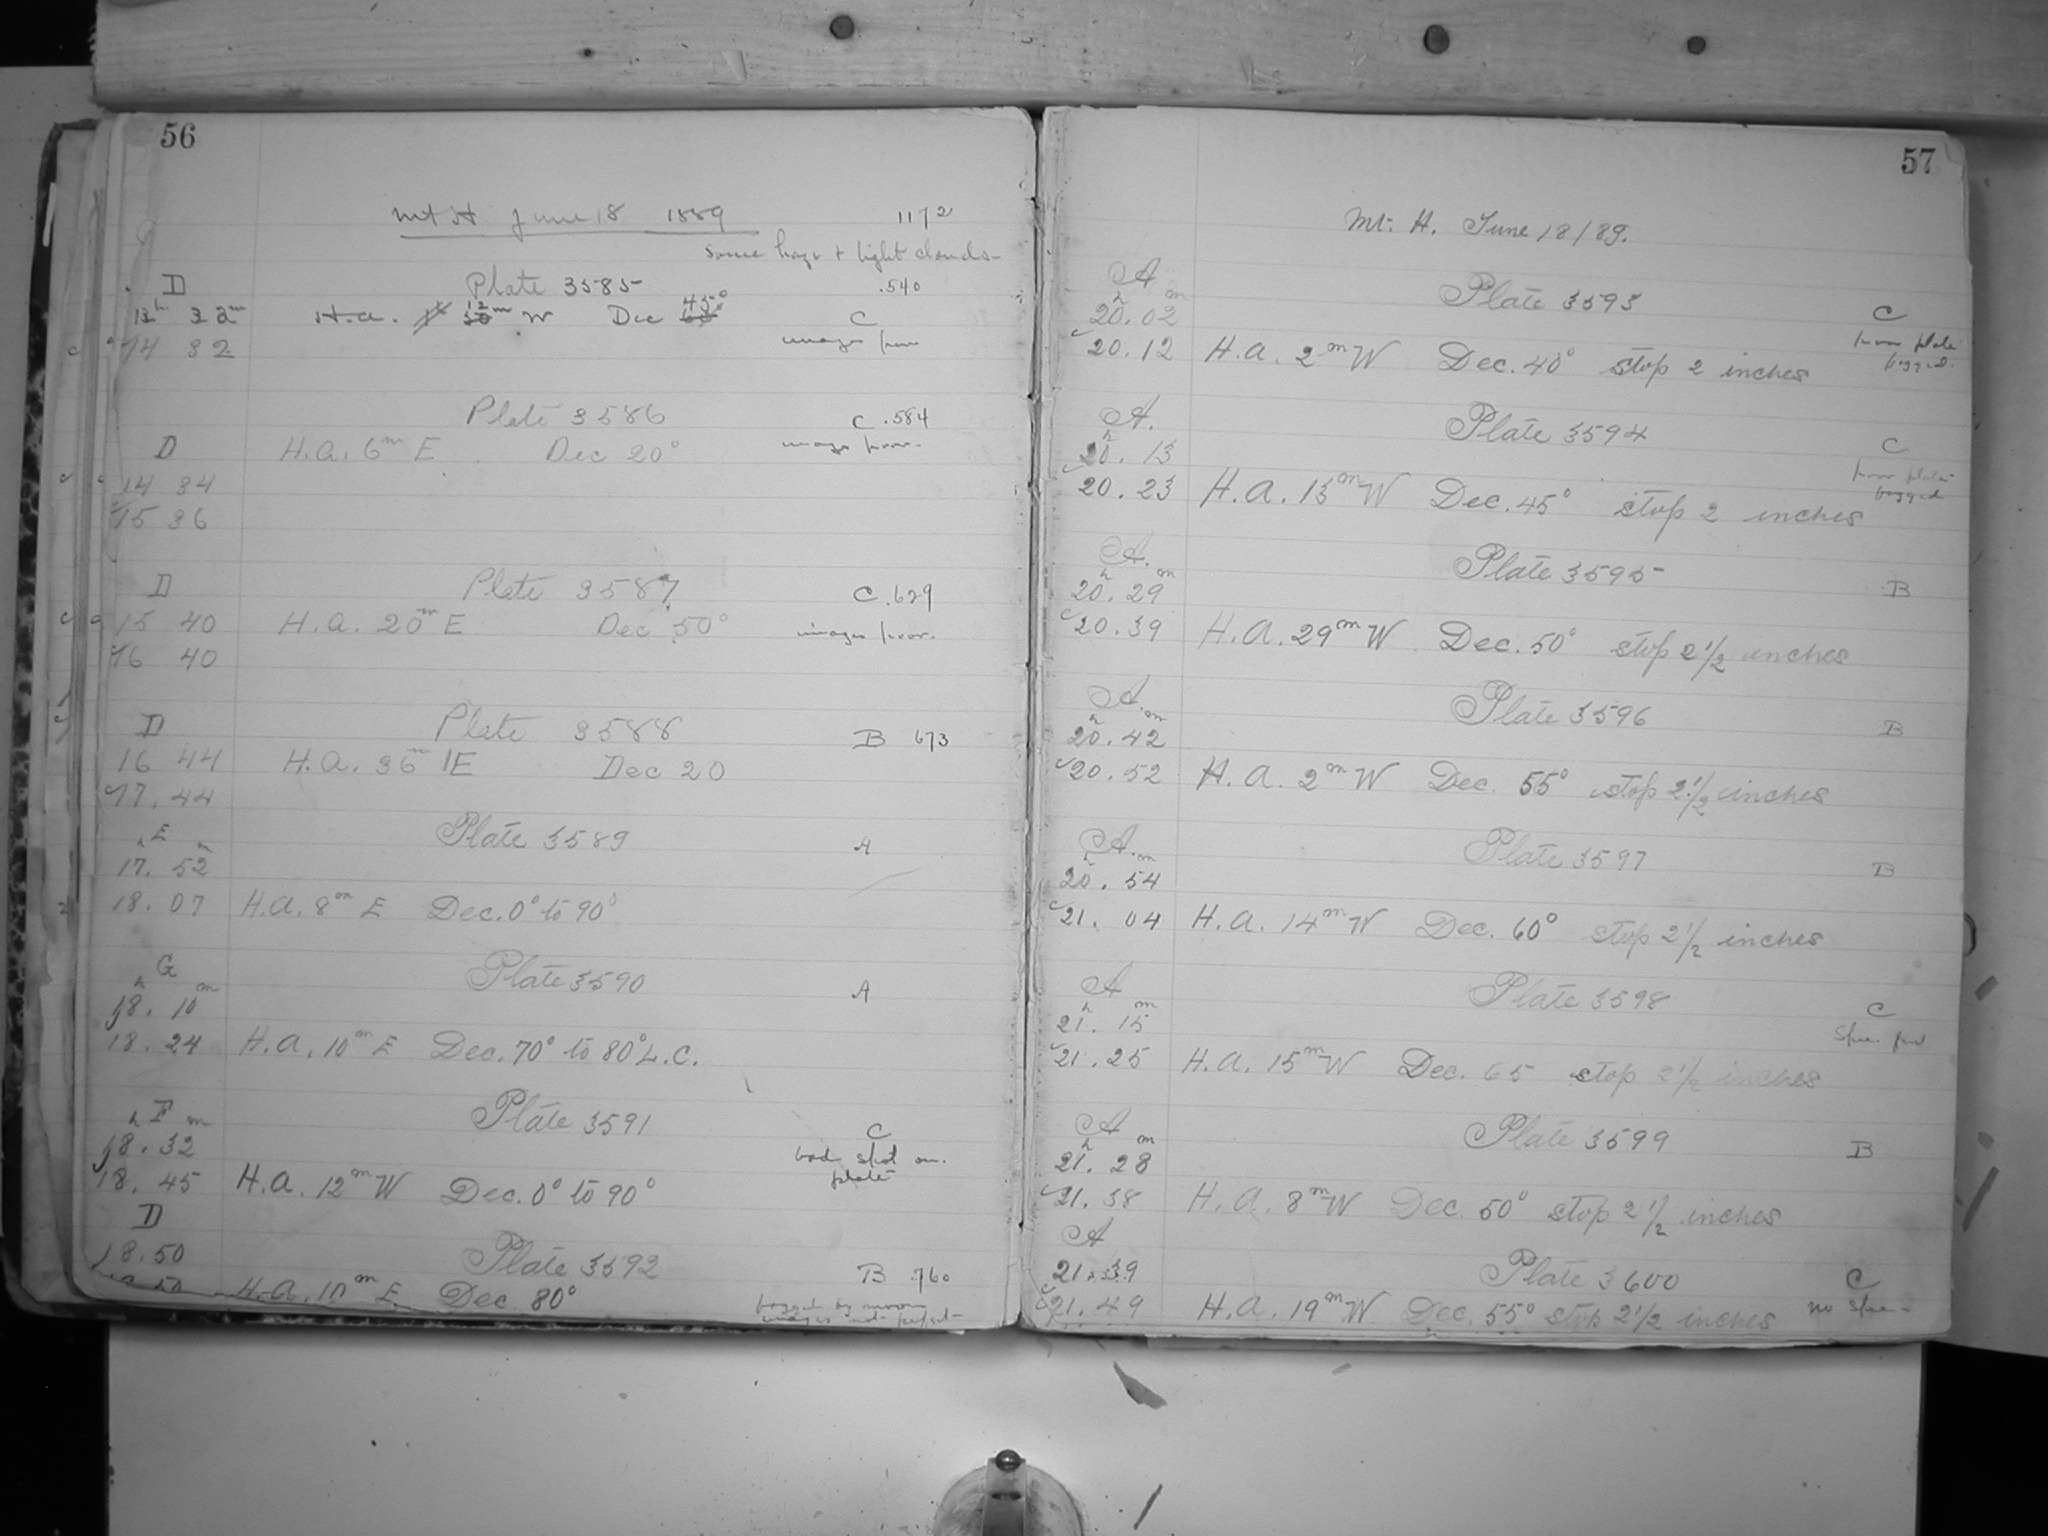 56
Mt H June 18 1889 1172
some haze + light clouds
D Plate 3585 .540
13h 32m H.a. 12m W Dec 45° C
14 32 images poor
Plate 3586 C .584
D H.a. 6m E Dec 20° images poor.
14 34
15 36
D Plate 3587 C .629
15 40 H.a. 20m E Dec 50° images poor.
16 40
D Plate 3588 B 673
16 44 H.a. 36m E Dec 20
17.44
E Plate 3589 A
17h. 52m
18.07 H.a. 8m E Dec. 0° to 90°
G Plate 3590 A
18h. 10m
18.24 H.a. 10m E Dec. 70° to 80° L.C.
F Plate 3591 C
18h. 32m bad spot on
18.45 H.a. 12m W Dec. 0° to 90° plate
D
18.50 Plate 3592 B .760
H.a. 10m E Dec 80° fogged by moon
images not perfect
57
Mt. H. June 18/89.
A Plate 3593 C
20h.02m poor plate
20.12 H.a. 2m W Dec. 40° stop 2 inches fogged.
A. Plate 3594 C
20h.13 poor plate
20.23 H.a. 13m W Dec. 45° stop 2 inches fogged
A. Plate 3595 B
20h.29m
20.39 H.a. 29m W Dec. 50° stop 2 1/2 inches
A. Plate 3596 B
20h.42m
20.52 H.a. 2m W Dec. 55° stop 2 1/2 inches
A. Plate 3597 B
20h.54m
21.04 H.a. 14m W Dec. 60° stop 2 1/2 inches
A Plate 3598 C
21h.15m
21.25 H.a. 15m W Dec. 65 stop 2 1/2 inches
A Plate 3599 B
21h.28m
21.38 H.a. 8m W Dec. 50° stop 2 1/2 inches
A
21.39 Plate 3600 C
21.49 H.a. 19m W Dec. 55° stop 2 1/2 inches no